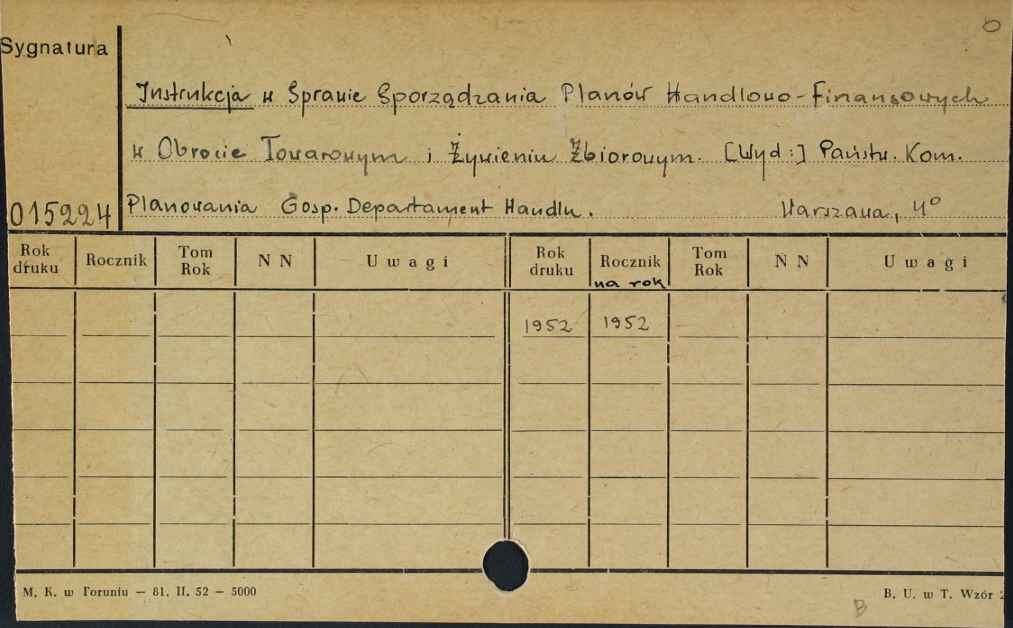 O
Sygnatura
Instrukcja w Sprawie Sporządzania Planów Handlowo-Finansowych
w Obrocie Towarowym i Żywieniu Zbiorowym. [Wyd:] Państw. Kom.
015224 Planowania Gosp. Departament Handlu. Warszawa, 4°
Rok druku Rocznik Tom Rok N N Uwagi Rok druku Rocznik na rok Tom Rok N N Uwagi
1952 1952
M. K. w Toruniu — 81. II. 52 — 5000 B. U. w T. Wzór 2
B